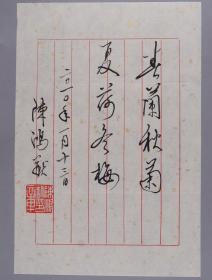 春蘭秋菊
夏荷冬梅
二〇一〇年一月十三日
陳鴻猷